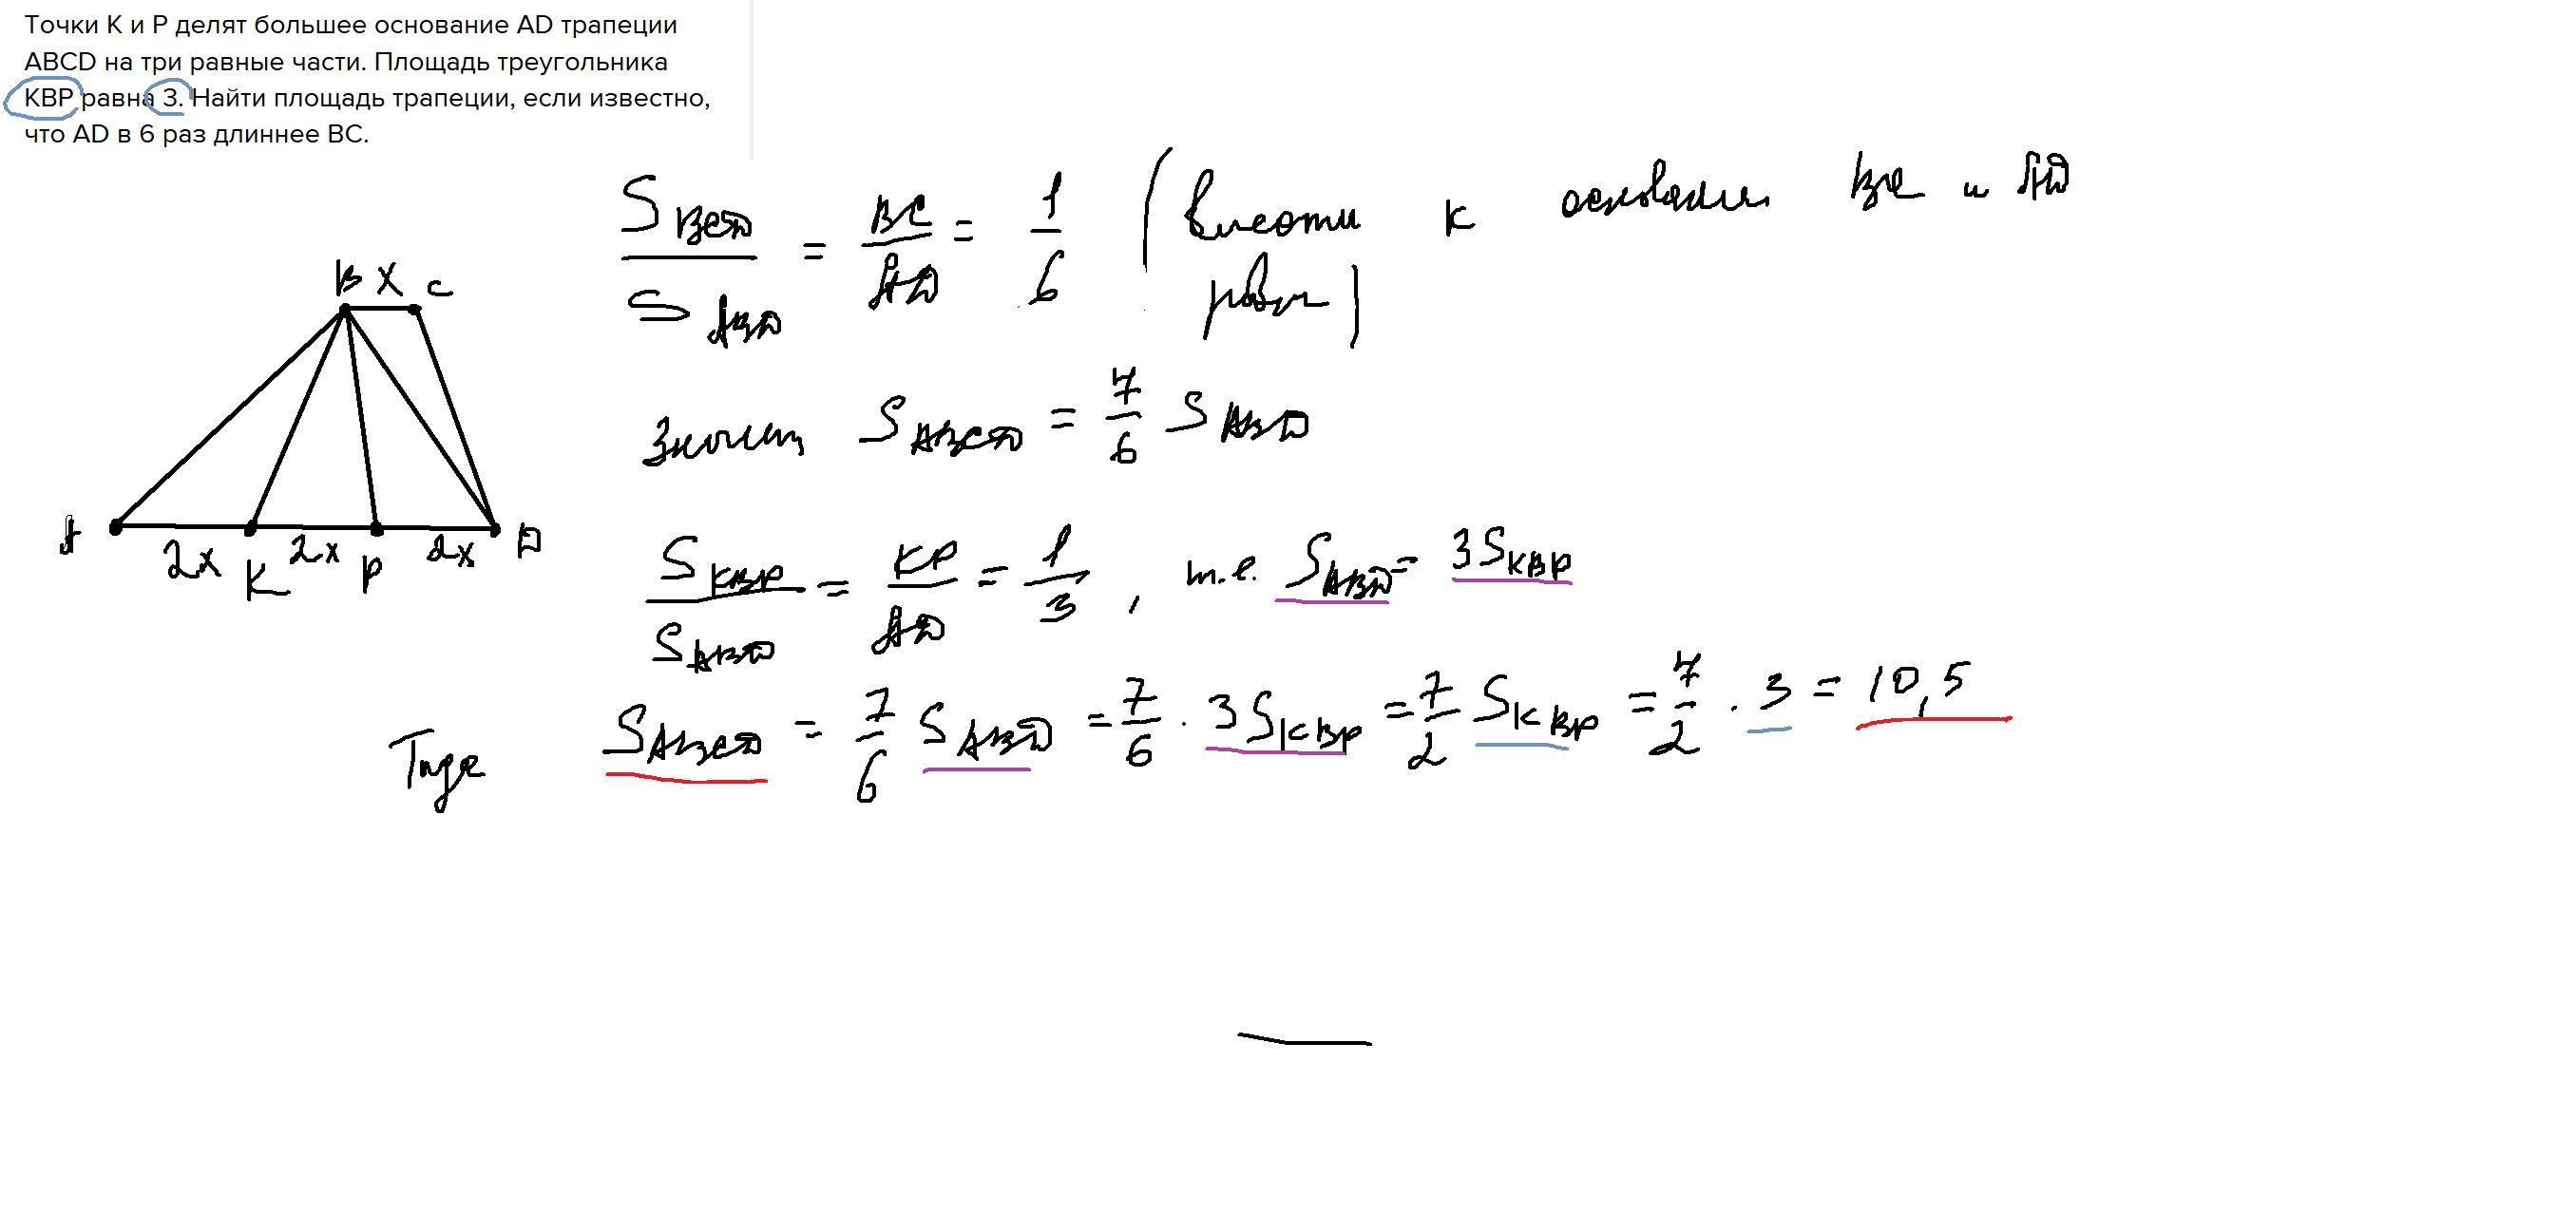 Точки К и Р делят большее основание AD трапеции
ABCD на три равные части. Площадь треугольника
KBP равна 3. Найти площадь трапеции, если известно,
что AD в 6 раз длиннее BC.
S_BCD / S_ABD = BC / AD = 1 / 6 (высоты к основаниям BC и AD
равны)
B x C
Значит S_ABCD = 7/6 S_ABD
A 2x K 2x P 2x D
S_KBP / S_ABD = KP / AD = 1 / 3 , т.е. S_ABD = 3S_KBP
Тогда S_ABCD = 7/6 S_ABD = 7/6 · 3S_KBP = 7/2 S_KBP = 7/2 · 3 = 10,5